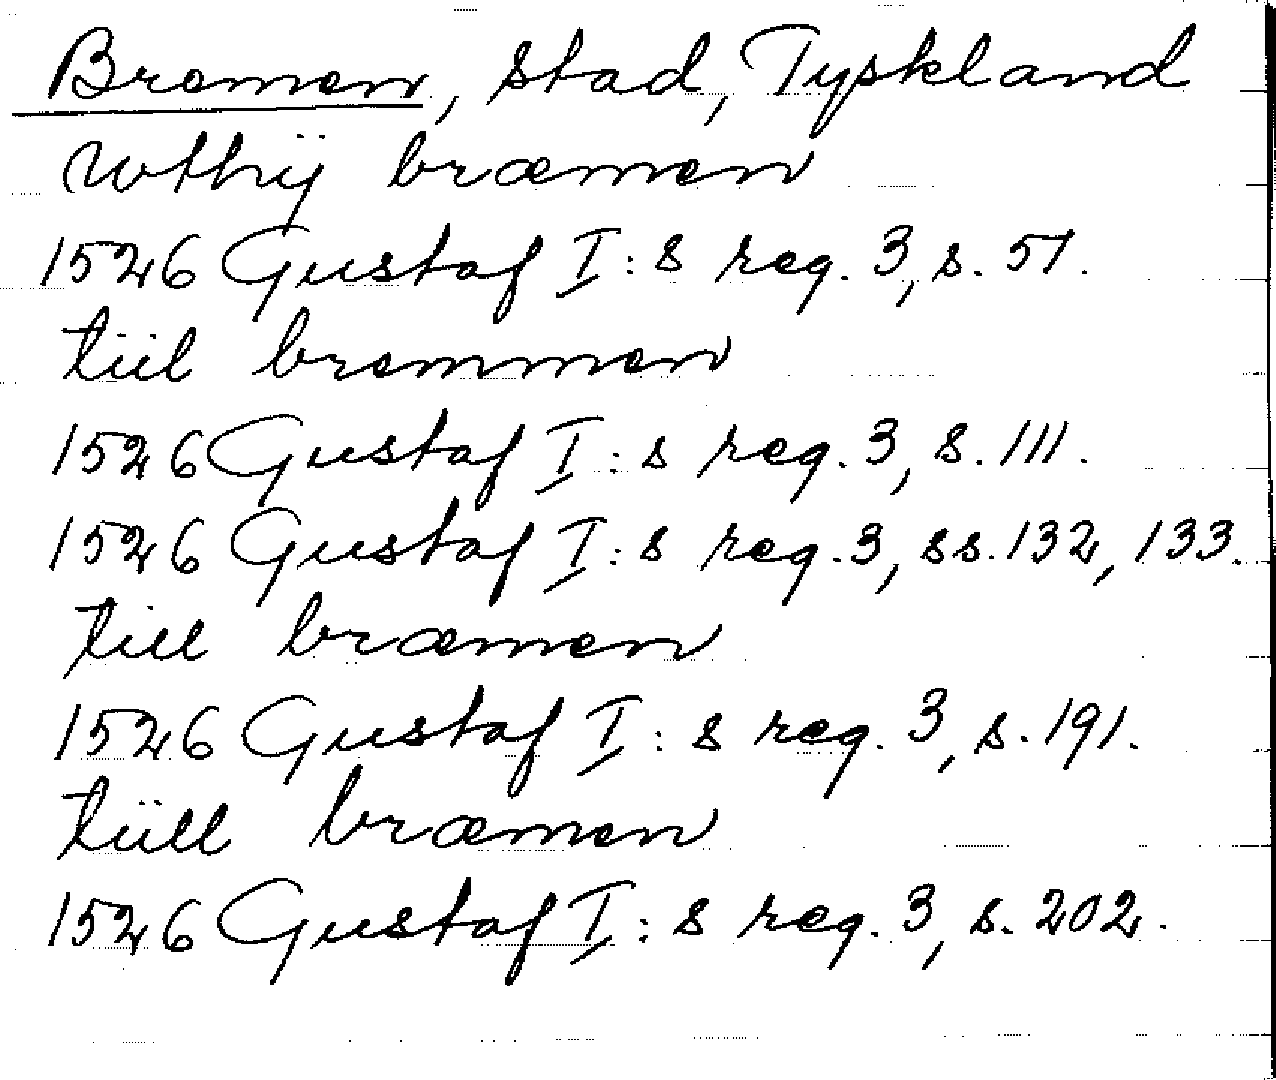 Bremen, stad, Tyskland
Wthij bræmen
1526 Gustaf I:s reg. 3, s. 51.
tiil bremmen
1526 Gustaf I:s reg. 3, s. 111.
1526 Gustaf I:s reg. 3, ss. 132, 133.
till bræmen
1526 Gustaf I:s reg. 3, s. 191.
tiill bræmen
1526 Gustaf I:s reg. 3, s. 202.